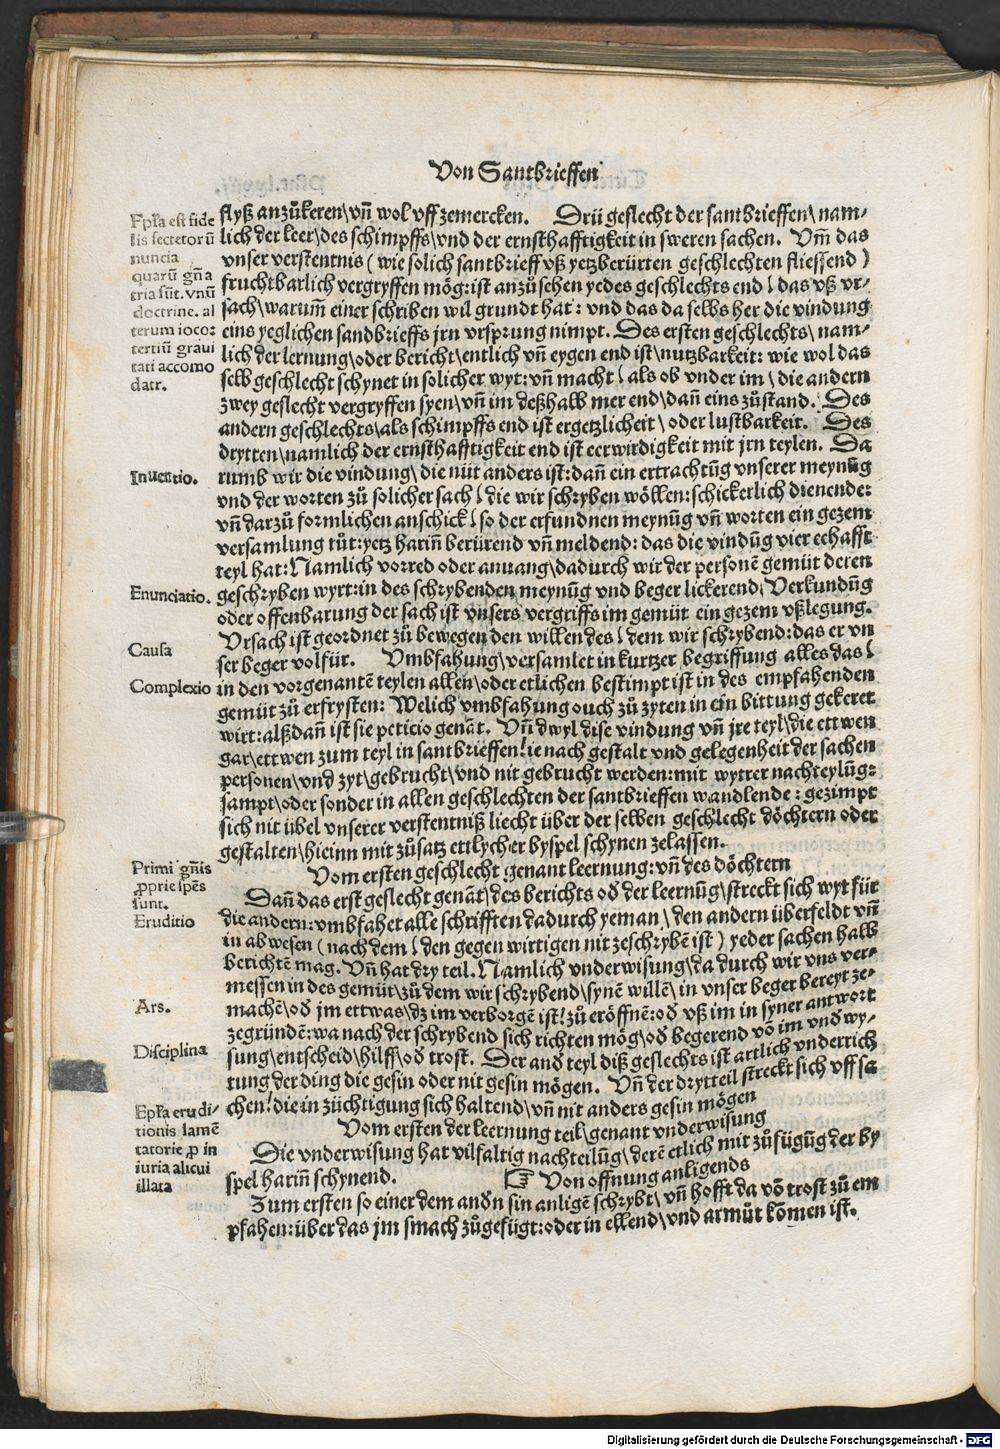 Von Santbrieffen
Ep̄ła est fide
lis secretorū
nuncia
quarū gn̄a
tria sūt. vnū
doctrine. al
terum ioco:
tertiū graui
tati accomo
datr.
flyß anzůkeren\ vn̄ wol vff zemercken. Drii geslecht der santbrieffen\ nam⸗
lich der leer\ des schimpffs\ vnd der ernsthafftigkeit in sweren sachen. Vm̄ das
vnser verstentnis ( wie solich santbrieff vß yetzberürten geschlechten fliessend )
fruchtbarlich vergryffen mög: ist anzůsehen yedes geschlechts end \ das vß vr⸗
sach\ warum̄ einer schriben wil grundt hat: vnd das da selbs her die vindung
eins yeglichen sandbrieffs jrn vrsprung nimpt. Des ersten geschlechts\ nam⸗
lich der lernung\ oder bericht\ entlich vn̄ eygen end ist\ nutzbarkeit: wie wol das
selb geschlecht schynet in solicher wyt: vn̄ macht \ als ob vnder im \ die andern
zwey geslecht vergryffen syen\ vn̄ im deßhalb mer end\ dan̄ eins zůstand. Des
andern geschlechts\ als schimpffs end ist ergetzlicheit \ oder lustbarkeit. Des
drytten\ namlich der ernsthafftigkeit end ist eerwirdigkeit mit jrn teylen. Da
Inuentio.
rumb wir die vindung\ die nüt anders ist: dan̄ ein ertrachtūg vnserer meynūg
vnd der worten zů solicher sach \ die wir schryben wöllen: schickerlich dienende:
vn̄ darzů formlichen anschick \ so der erfundnen meynūg vn̄ worten ein gezem
versamlung tůt: yetz harin̄ berürend vn̄ meldend: das die vindūg vier eehafft
teyl hat: Namlich vorred oder anuang\ dadurch wir der personē gemüt deren
Enunciatio.
geschryben wyrt: in des schrybenden meynūg vnd beger lickerend. Verkundūg
oder offenbarung der sach ist vnsers vergriffs im gemüt ein gezem vßlegung.
Causa
Vrsach ist geordnet zů bewegen den willen des \ dem wir schrybend: das er vn
ser beger volfür. Vmbfahung\ versamlet in kurtzer begriffung alles das \
Complexio
in den vorgenantē teylen allen\ oder etlichen bestimpt ist in des empfahenden
gemüt zů erfrysten: Welich vmbfahung ouch zů zyten in ein bittung gekeret
wirt: alßdan̄ ist sie peticio genāt. Vn̄ dwyl dise vindung vn̄ jre teyl\ die ettwen
gar\ ettwen zum teyl in santbrieffen \ ie nach gestalt vnd gelegenheit der sachen
personen\ vnd zyt\ gebrucht\ vnd nit gebrucht werden: mit wytrer nachteylūg:
sampt\ oder sonder in allen geschlechten der santbrieffen wandlende: gezimpt
sich nit übel vnserer verstentniß liecht über der selben geschlecht döchtern oder
gestalten\ hieinn mit zůsatz ettlycher byspel schynen zelassen.
Vom ersten geschlecht genant leernung: vn̄ des döchtern
Primi gn̄is
ꝓprie sp̄es
sunt.
Eruditio
Dan̄ das erst geslecht genāt\ des berichts od̄ der leernūg\ streckt sich wyt für
die andern: vmbfahet alle schrifften dadurch yeman \ den andern überfeldt vn̄
in abwesen ( nach dem \ den gegen wirtigen nit zeschrybē ist ) yeder sachen halb
berichtē mag. Vn̄ hat dry teil. Namlich vnderwisung\ da durch wir vns ver⸗
messen in des gemüt\ zů dem wir schrybend\ synē willē\ in vnser beger bereyt ze⸗
Ars.
machē\ od̄ jm ettwas\ dz im verborgē ist \ zů eröffnē: od̄ vß im in syner antwort
zegründē: wa nach der schrybend sich richten mög\ od̄ begerend vō im vnd wy⸗
Disciplina
sung\ entscheid\ hilff\ od̄ trost. Der and̄ teyl diß geslechts ist artlich vnderrich
tung der ding die gesin oder nit gesin mögen. Vn̄ der drytteil streckt sich vff sa
chen \ die in züchtigung sich haltend\ vn̄ nit anders gesin mögen
Ep̄ła erudi⸗
tionis lamē
tatorie ꝓ in
iuria alicui
illata
Vom ersten der leernung teil\ genant vnderwisung
Die vnderwisung hat vilfaltig nachteilūg\ derē etlich mit zůfügūg der by
spel harin̄ schynend. ☞ Von offnung anligends
Zum ersten so einer dem andn̄ sin anligē schrybt \ vn̄ hofft da vō trost zů em
pfahen: über das jm smach zůgefügt: oder in ellend\ vnd armůt komen ist.
Digitalisierung gefördert durch die Deutsche Forschungsgemeinschaft - DFG